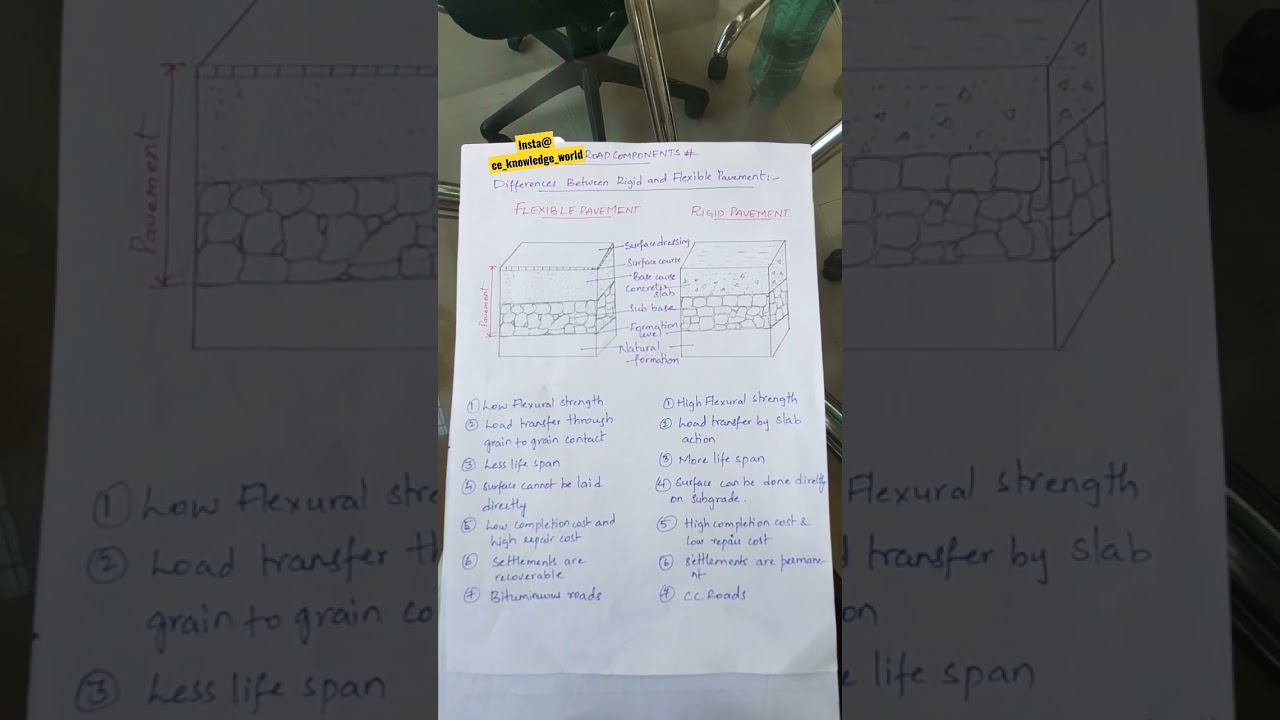 Insta@
ce_knowledge_world
ROAD COMPONENTS #
Differences Between Rigid and Flexible Pavement:-
FLEXIBLE PAVEMENT
RIGID PAVEMENT.
Surface dressing
Surface course
Base course
Concrete slab
Sub base
Formation level
Natural formation
Pavement
① Low Flexural strength
② Load transfer through
grain to grain contact
③ Less life span
④ Surface cannot be laid
directly
⑤ Low completion cost and
high repair cost
⑥ Settlements are
recoverable
⑦ Bituminous roads
① High Flexural strength
② Load transfer by slab
action
③ More life span
④ Surface can be done directly
on subgrade.
⑤ High completion cost &
low repair cost
⑥ Settlements are permane-
nt
⑦ CC Roads
Pavement
① Low Flexural stre
② Load transfer th
grain to grain co
③ Less life span
Flexural strength
by slab
on
life span